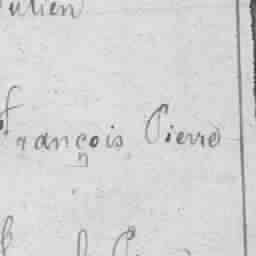 ulien
François Pierre